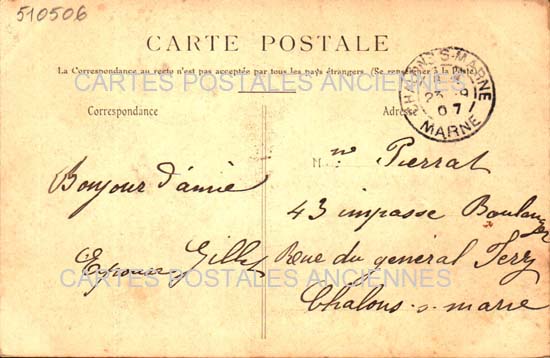 510506
CARTE POSTALE
La Correspondance au recto n'est pas acceptée par tous les pays étrangers. (Se renseigner à la Poste)
CARTES POSTALES ANCIENNES
Correspondance
Adresse
CHALONS-S-MARNE
07
MARNE
Bonjour d'amie
Gilles
M Pierrat
43 impasse Boulanger
Rue du général Ferry
Chalons-s-marne
CARTES POSTALES ANCIENNES